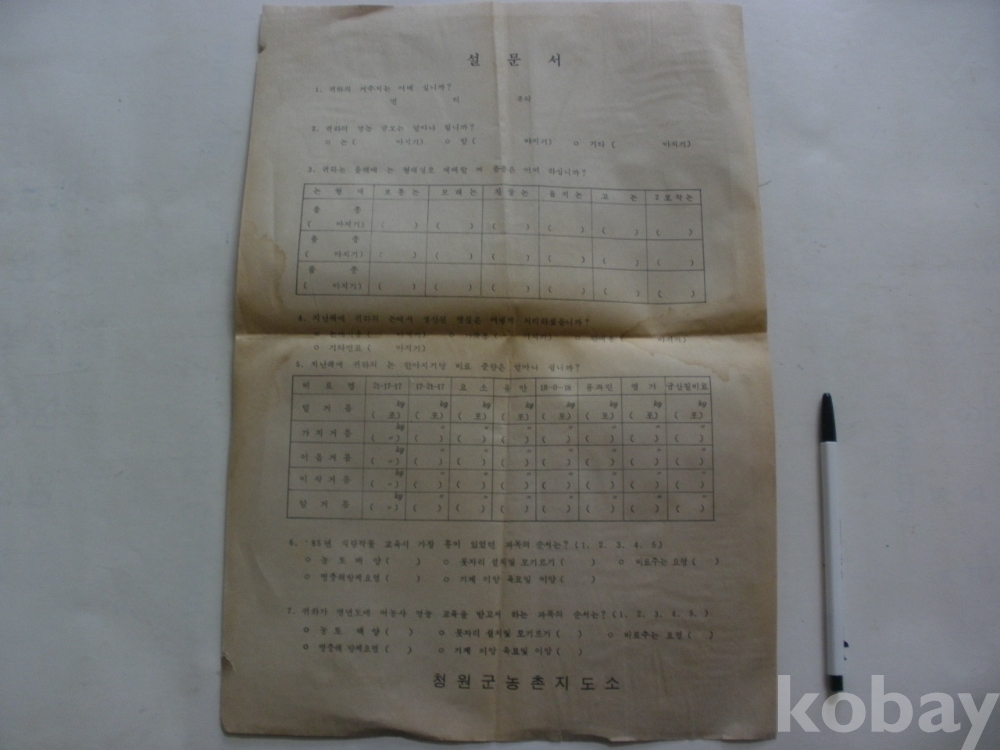 설 문 서
1. 귀하의 거주지는 어데 십니까?
면 리 부락
2. 귀하의 영농 규모는 얼마나 됩니까?
○ 논 ( 마지기) ○ 밭 ( 마지기) ○ 기타 ( 마지기)
3. 귀하는 올해에 논 형태별로 재배할 벼 품종은 어떠 하십니까?
논 형 태 보통논 모래논 참흙논 습지논 고 논 2모작논
품 종
( 마지기) ( ) ( ) ( ) ( ) ( ) ( )
품 종
( 마지기) ( ) ( ) ( ) ( ) ( ) ( )
품 종
( 마지기) ( ) ( ) ( ) ( ) ( ) ( )
4. 지난해에 귀하의 논에서 생산된 볏짚은 어떻게 처리하셨읍니까?
마지기) 마지기) 마지기)
○ 기타연료 ( 마지기)
5. 지난해에 귀하의 논 한마지기당 비료 준량은 얼마나 됩니까?
비 료 명 21-17-17 17-21-17 요 소 유 안 18-0-18 용과린 염 가 규산질비료
밑 거 름 kg kg kg kg kg kg kg kg
( 포) ( 포) ( 포) ( 포) ( 포) ( 포) ( 포) ( 포)
가 지 거 름 kg 〃 〃 〃 〃 〃 〃 〃
( 〃 ) ( ) ( ) ( ) ( ) ( ) ( ) ( )
이 삭 거 름 kg 〃 〃 〃 〃 〃 〃 〃
( 〃 ) ( ) ( ) ( ) ( ) ( ) ( ) ( )
알 거 름 kg 〃 〃 〃 〃 〃 〃 〃
( 〃 ) ( ) ( ) ( ) ( ) ( ) ( ) ( )
6. '85년 식량작물 교육시 가장 흥미 있었던 과목의 순서는? (1, 2. 3. 4. 5)
○ 농 토 배 양 ( ) ○ 못자리 설치및 모기르기 ( ) ○ 비료주는 요령 ( )
○ 병충해방제요령 ( ) ○ 기계 이앙 육묘및 이앙 ( )
7. 귀하가 명년도에 벼농사 영농 교육을 받고저 하는 과목의 순서는? (1, 2. 3. 4. 5.)
○ 농 토 배 양 ( ) ○ 못자리 설치및 모기르기 ( ) ○ 비료주는 요령 ( )
○ 병충해 방제요령 ( ) ○ 기계 이앙 육묘및 이앙 ( )
청원군농촌지도소
kobay